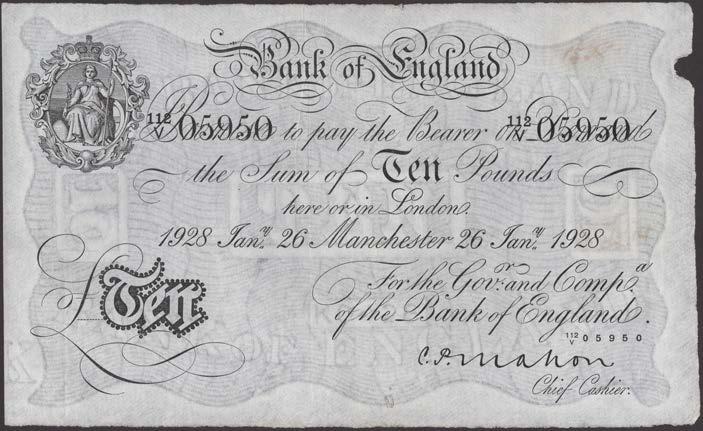 Bank of England
112/V 05950 112/V 05950
to pay the Bearer on
the Sum of Ten Pounds
here or in London.
1928 Jan.y 26 Manchester 26 Jan.y 1928
For the Gov.r and Comp.a
of the Bank of England.
£Ten
112/V 05950
C.P. Mahon
Chief Cashier.